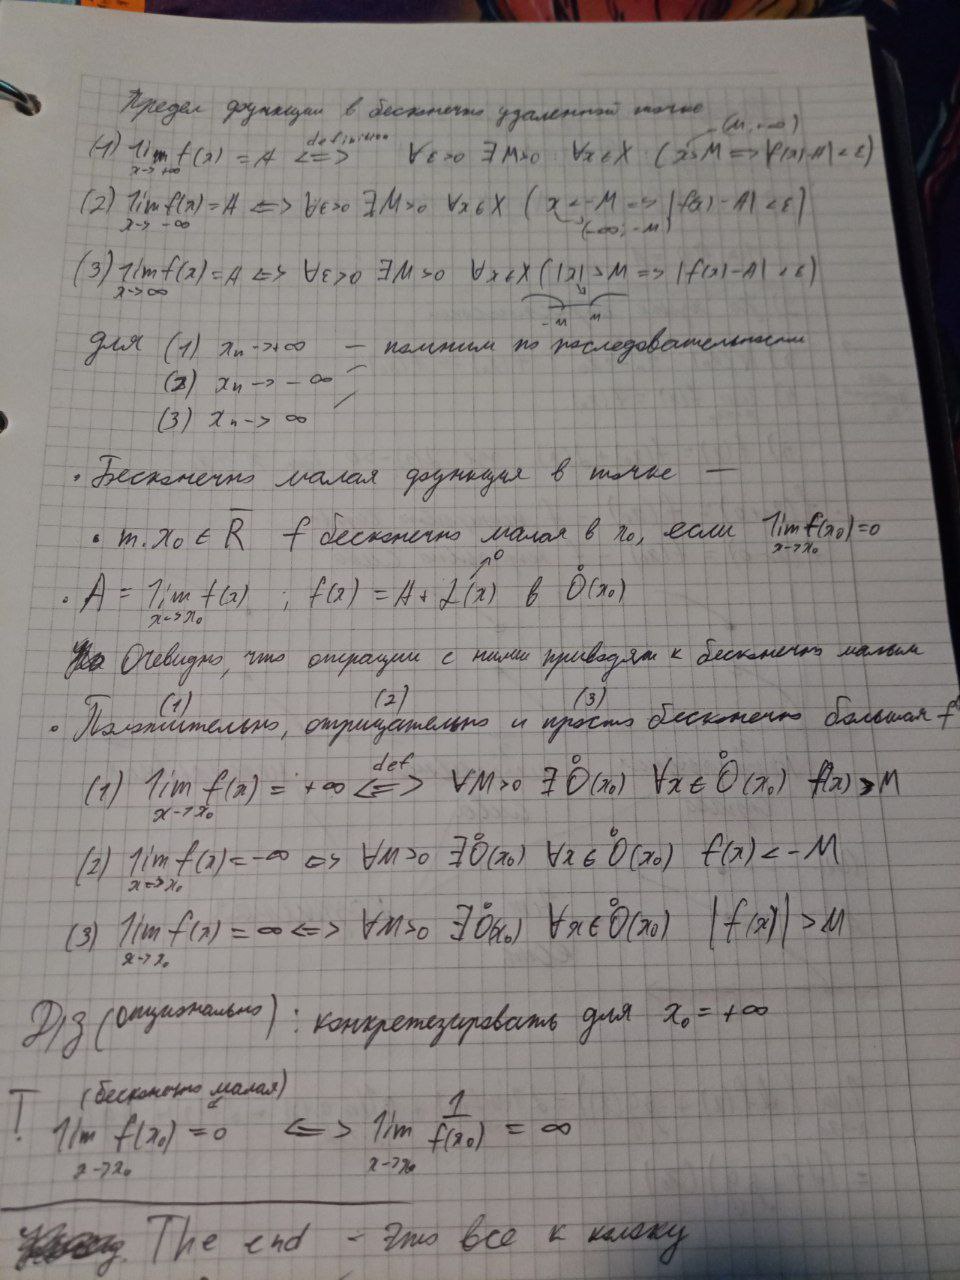 Предел функции в бесконечно удаленной точке
(1) lim f(x) = A <=> definition ∀ε>0 ∃M>0 ∀x∈X (x>M => |f(x)-A|<ε) (M; +∞)
x->+∞
(2) lim f(x)=A <=> ∀ε>0 ∃M>0 ∀x∈X (x<-M => |f(x)-A|<ε)
x->-∞ (-∞; -M)
(3) lim f(x)=A <=> ∀ε>0 ∃M>0 ∀x∈X (|x|>M => |f(x)-A|<ε)
x->∞ -M M
для (1) xn->+∞ — помним по последовательности
(2) xn->-∞
(3) xn->∞
• Бесконечно малая функция в точке —
• т. x₀ ∈ R̅ f бесконечно малая в x₀, если lim f(x₀)=0
x->x₀
• A = lim f(x) ; f(x) = A + α(x) в O̊(x₀)
x->x₀ 0
Очевидно, что операции с ними приводят к бесконечно малым
(1) (2) (3)
• Положительно, отрицательно и просто бесконечно большая f
(1) lim f(x) = +∞ <=> def ∀M>0 ∃O̊(x₀) ∀x∈O̊(x₀) f(x)>M
x->x₀
(2) lim f(x)=-∞ <=> ∀M>0 ∃O̊(x₀) ∀x∈O̊(x₀) f(x)<-M
x->x₀
(3) lim f(x)=∞ <=> ∀M>0 ∃O̊(x₀) ∀x∈O̊(x₀) |f(x)|>M
x->x₀
Д/з (опционально): конкретезировать для x₀=+∞
(бесконечно малая)
T lim f(x₀)=0 <=> lim 1/f(x₀) = ∞
x->x₀ x->x₀
The end - Это все к коллоку